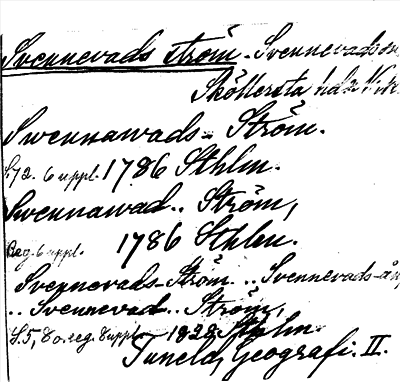 Svennevads ström. Svennevads
Sköllersta
Swennawads.. Ström.
S. 72. 6 uppl. 1786 Sthlm.
Swennawad.. Ström,
Reg. 6 uppl. 1786 Sthlm.
Svennevads-Ström.. Svennevads-ån
.. Svennevad.. Ström,
S. 5, 8 o. reg. 8 uppl. 1828 Sthlm.
Tuneld, Geografi. II.